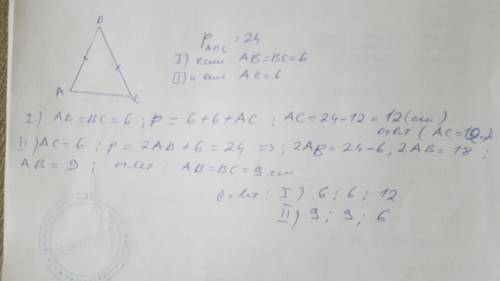 B
P ABC = 24
I) если AB=BC=6
II) и если AC=6
A
C
I) AB=BC=6 ; P = 6+6+AC ; AC=24-12=12(см)
ответ (AC=12
II) AC=6 ; P = 2AB+6=24 => ; 2AB=24-6; 2AB=18 ;
AB=9 ; ответ : AB=BC=9 см
Ответ: I) 6 ; 6 ; 12
II) 9 ; 9 ; 6